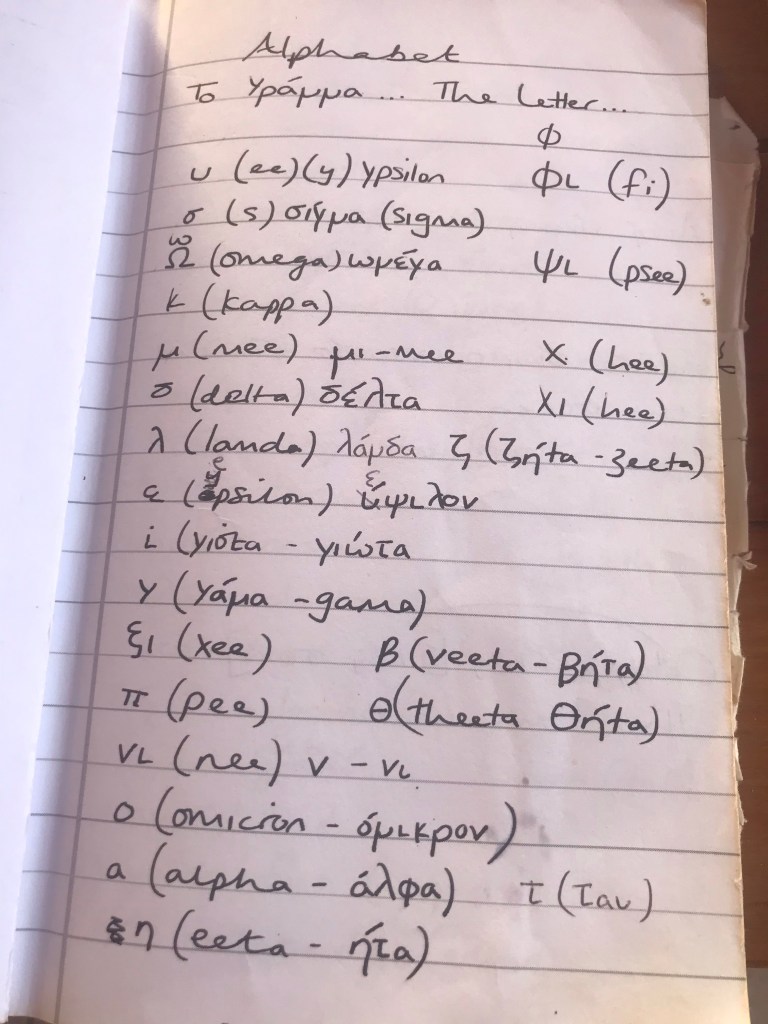 Alphabet
Το γράμμα... The letter...
φ
υ (ee)(y) ypsilon φι (fi)
σ (s) σίγμα (sigma)
ω
Ω (omega) ωμέγα ψι (psee)
κ (kappa)
μ (mee) μι-mee χ. (hee)
δ (delta) δέλτα χι (hee)
λ (landa) λάμδα ζ (ζήτα - zeeta)
ε (epsilon) έψιλον
i (yiota - γιώτα
γ (γάμα - gama)
ξι (xee) β (veeta - βήτα)
π (pee) θ (theeta θήτα)
νι (nee) ν - νι
ο (omicron - όμικρον)
α (alpha - άλφα) τ (ταυ)
η (eeta - ήτα)